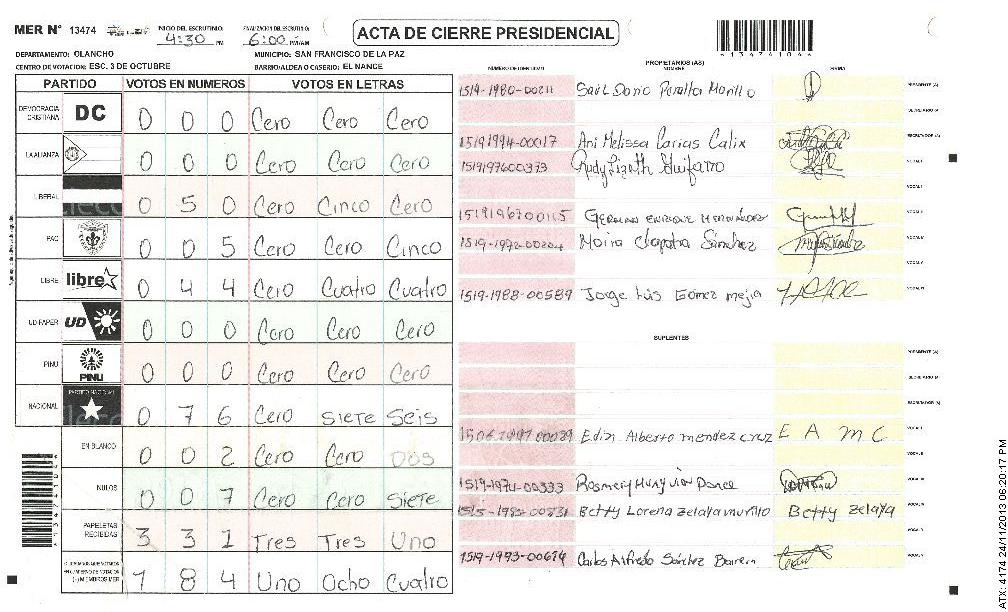 MER N° 13474
INICIO DEL ESCRUTINIO:
4:30 PM
FINALIZACION DEL ESCRUTINIO:
6:00 PM/AM
ACTA DE CIERRE PRESIDENCIAL
DEPARTAMENTO: OLANCHO
MUNICIPIO: SAN FRANCISCO DE LA PAZ
CENTRO DE VOTACION: ESC. 3 DE OCTUBRE
BARRIO/ALDEA O CASERIO: EL NANCE
PARTIDO VOTOS EN NUMEROS VOTOS EN LETRAS
DEMOCRACIA CRISTIANA DC 0 0 0 Cero Cero Cero
LA ALIANZA 0 0 0 Cero Cero Cero
LIBERAL 0 5 0 Cero Cinco Cero
PAC 0 0 5 Cero Cero Cinco
LIBRE libre 0 4 4 Cero Cuatro Cuatro
UD FAPER UD 0 0 0 Cero Cero Cero
PINU PINU 0 0 0 Cero Cero Cero
NACIONAL PARTIDO NACIONAL 0 7 6 Cero Siete Seis
EN BLANCO 0 0 2 Cero Cero Dos
NULOS 0 0 7 Cero Cero Siete
PAPELETAS RECIBIDAS 3 3 1 Tres Tres Uno
1 8 4 Uno Ocho Cuatro
PROPIETARIOS (AS)
NUMERO DE IDENTIDAD NOMBRE FIRMA
1519-1980-00211 Saúl Dario Peralta Morillo PRESIDENTE (A)
SECRETARIO (A)
1519 1994-00017 Ani Melissa Carias Calix ESCRUTADOR (A)
1519197600373 Rudy Lizeth Guifarro VOCAL I
1519196700115 GERMAN ENRIQUE HERNANDEZ
1519-1992-00204 Moira Sánchez
1519-1988-00589 Jorge Luis Gómez mejia
SUPLENTES
PRESIDENTE (A)
SECRETARIO (A)
ESCRUTADOR (A)
Edin Alberto mendez cruz E A M C
1519-1974-00333 Rosmery Ponce
Betty Lorena zelaya murillo Betty zelaya
1519-1993-00674 Carlos Alfredo Sánchez
ATX: 4174 24/11/2013 06:20:17 PM